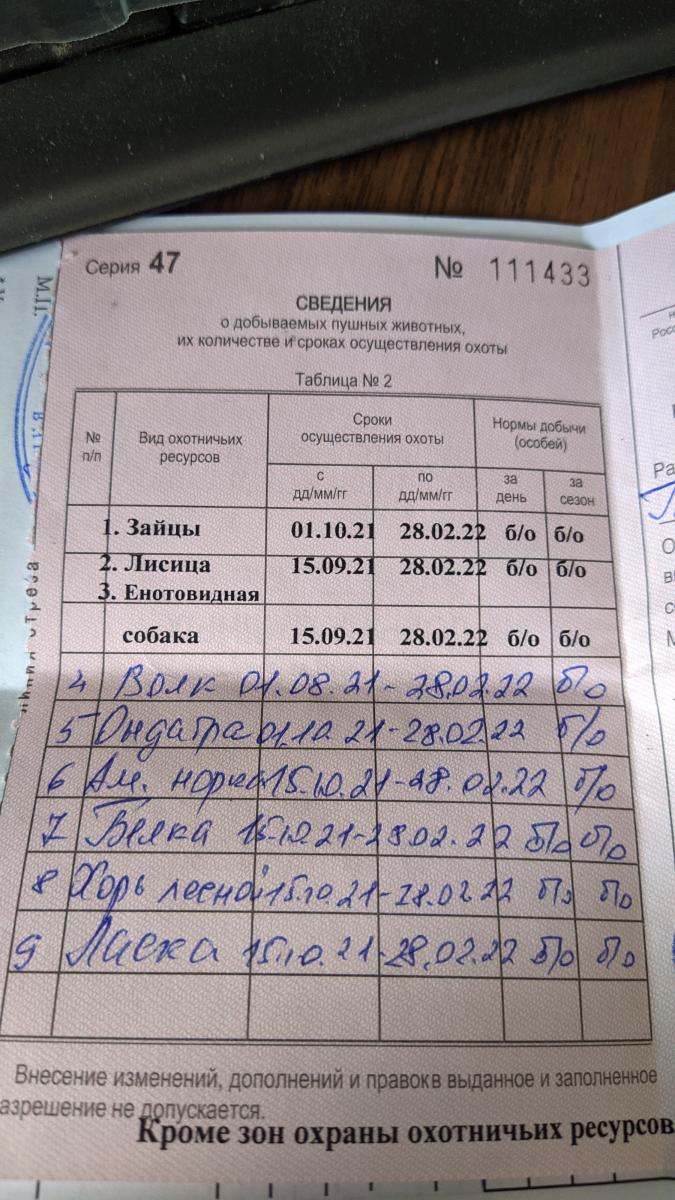 Серия 47 № 111433
СВЕДЕНИЯ
о добываемых пушных животных,
их количестве и сроках осуществления охоты
Таблица № 2
№ п/п Вид охотничьих ресурсов Сроки осуществления охоты Нормы добычи (особей)
с дд/мм/гг по дд/мм/гг за день за сезон
1. Зайцы 01.10.21 28.02.22 б/о б/о
2. Лисица 15.09.21 28.02.22 б/о б/о
3. Енотовидная
собака 15.09.21 28.02.22 б/о б/о
4 Волк 01.08.21-28.02.22 б/о
5 Ондатра 01.10.21-28.02.22 б/о
6 Ам. норка 15.10.21-28.02.22 б/о
7 Белка 15.10.21-28.02.22 б/о б/о
8 Хорь лесной 15.10.21-28.02.22 б/о б/о
9 Ласка 15.10.21-28.02.22 б/о б/о
Внесение изменений, дополнений и правок в выданное и заполненное
азрешение не допускается.
Кроме зон охраны охотничьих ресурсов
М.П.
отреза